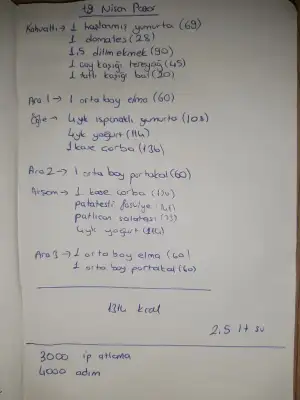 19 Nisan Pazar
Kahvaltı → 1 haşlanmış yumurta (69)
1 domates (28)
1,5 dilim ekmek (90)
1 çay kaşığı tereyağ (45)
1 tatlı kaşığı bal (30)
Ara 1 → 1 orta boy elma (60)
Öğle → 4 yk ıspanaklı yumurta (108)
4yk yoğurt (114)
1 kase çorba (136)
Ara 2 → 1 orta boy portakal (60)
Akşam → 1 kase çorba
patatesli fasulye
patlıcan salatası
4yk yoğurt (114)
Ara 3 → 1 orta boy elma (60)
1 orta boy portakal (60)
kcal
2.5 lt su
3000 ip atlama
4000 adım